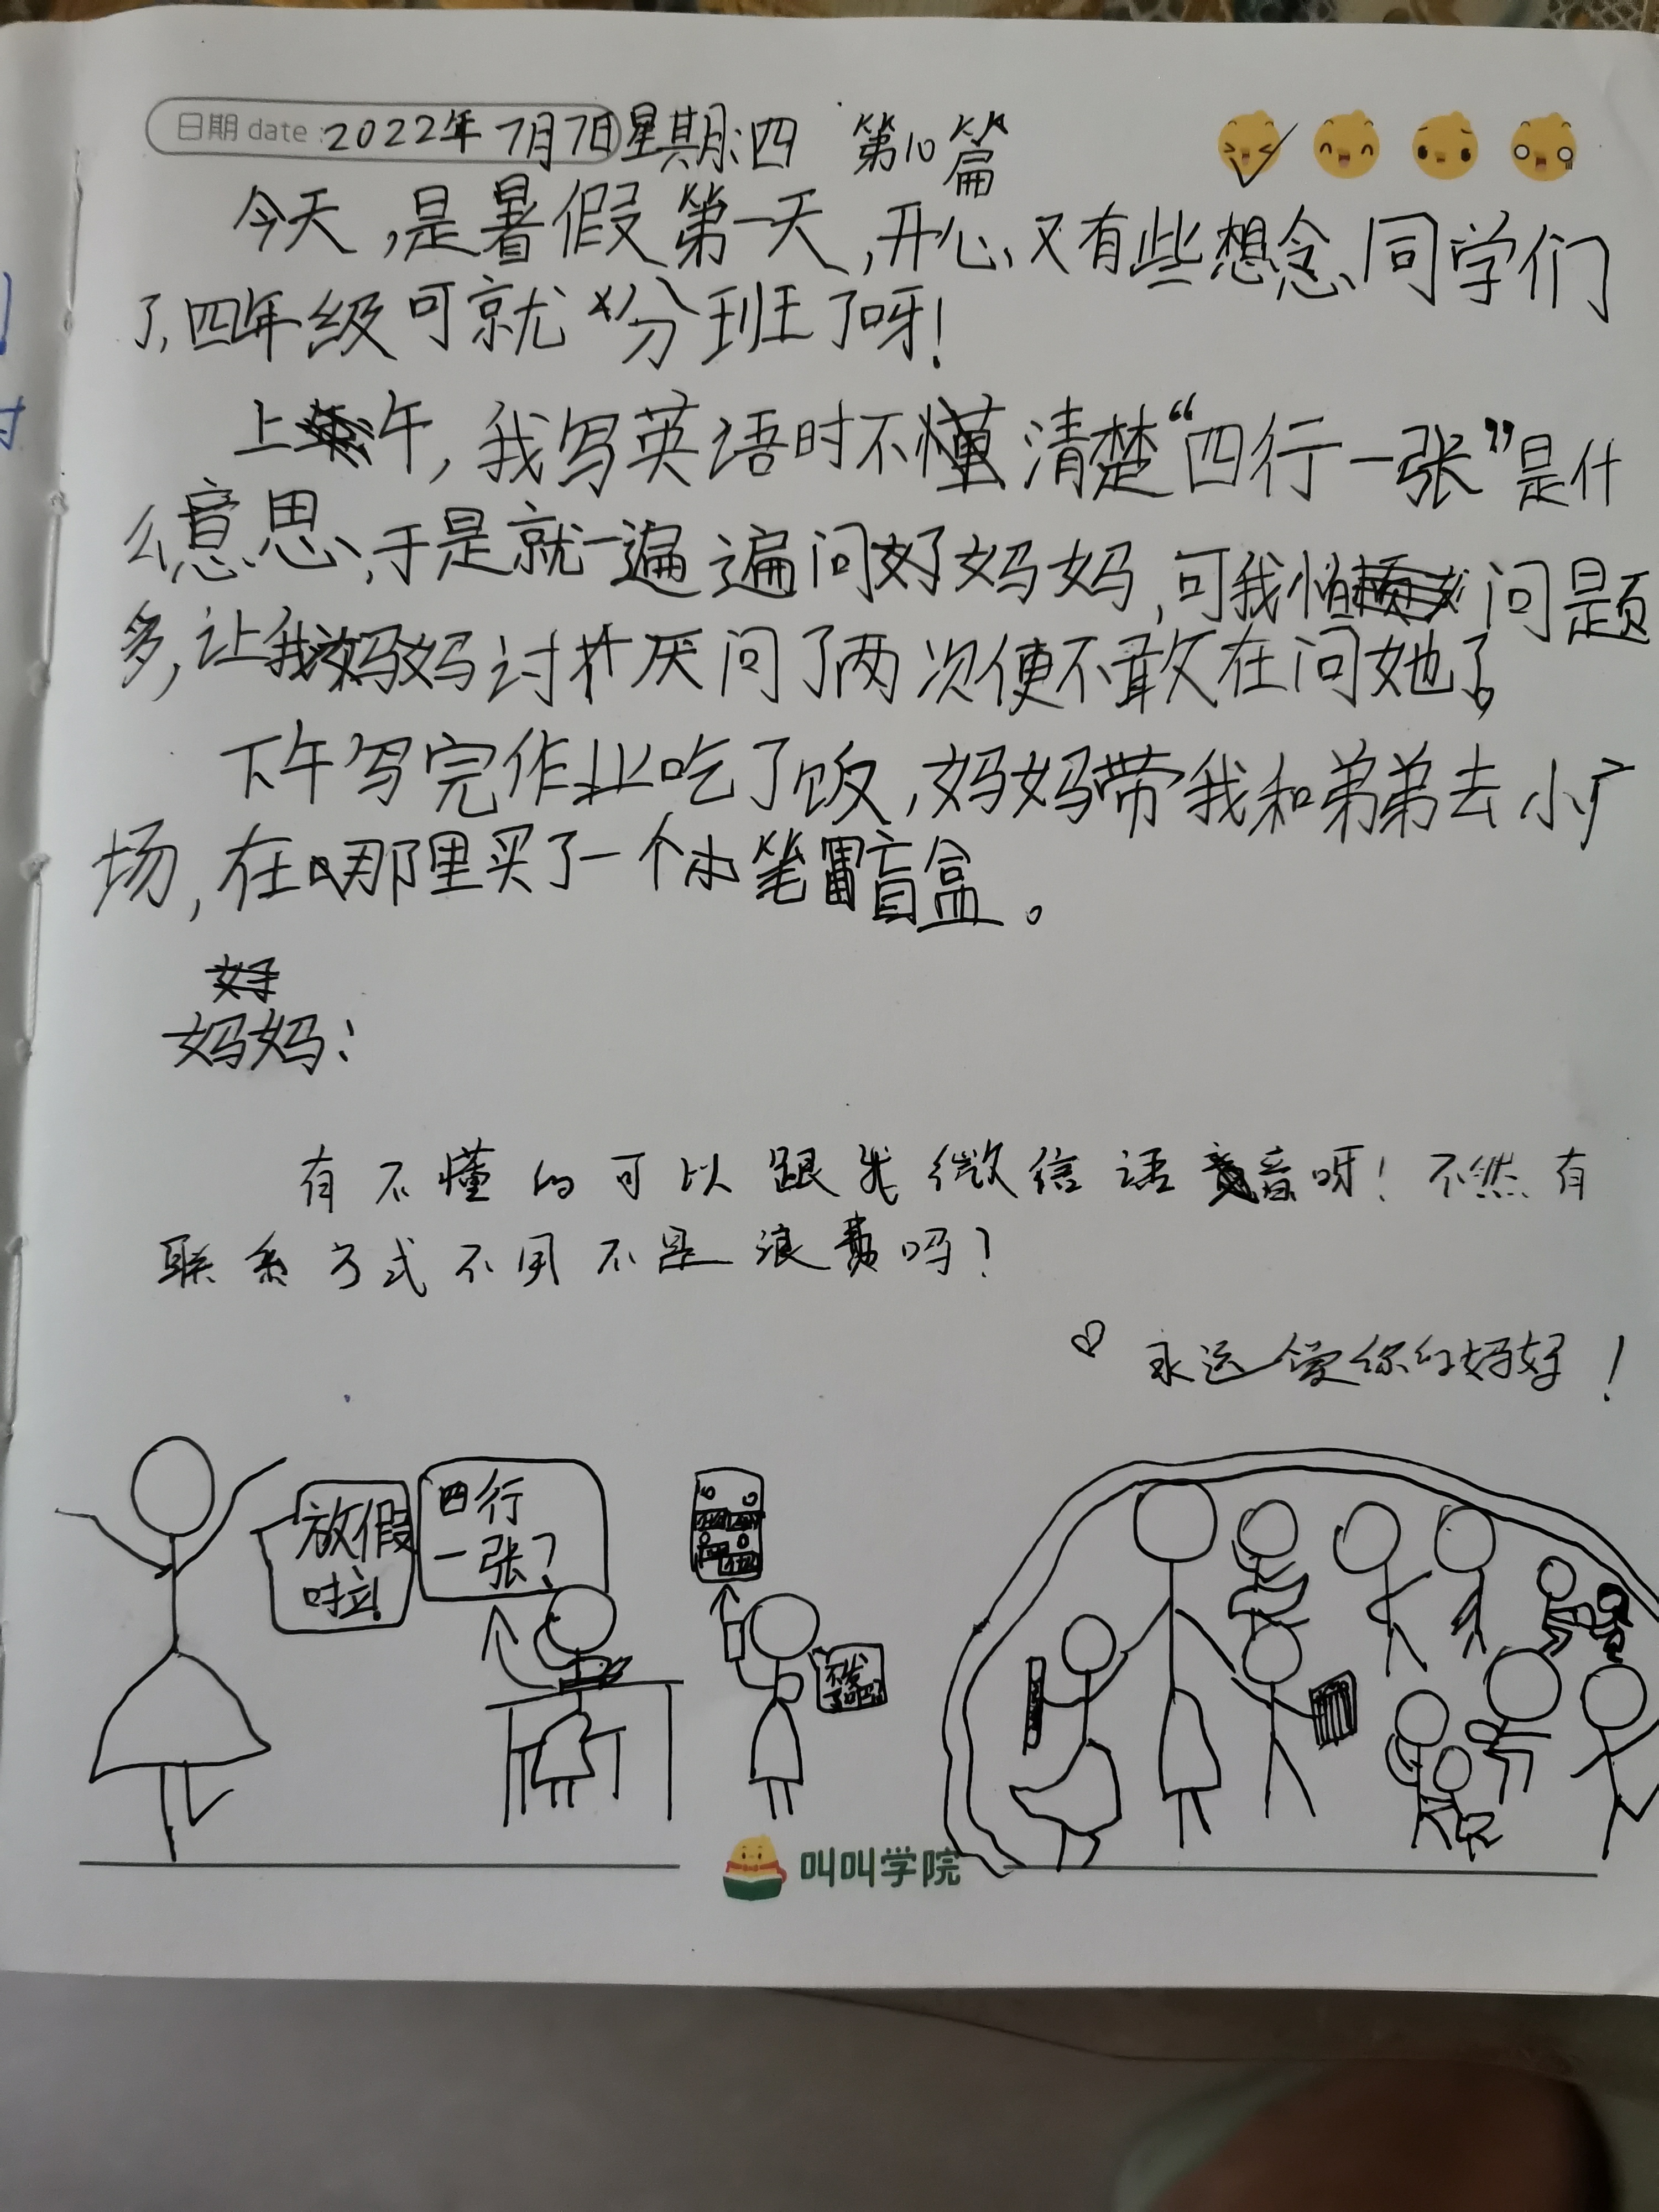 日期 date: 2022年7月7日星期四 第10篇
今天,是暑假第一天,开心、又有些想念、同学们
了,四年级可就分班了呀!
上午,我写英语时不懂清楚“四行一张”是什
么意思,于是就一遍遍问好妈妈,可我怕问题
多,让妈妈讨厌问了两次便不敢在问她了。
下午写完作业吃了饭,妈妈带我和弟弟去小广
场,在那里买了一个小笔盲盒。
妈妈:
有不懂的可以跟我微信语音呀!不然有
联系方式不用不是浪费吗?
永远爱你的妈妈!
放假
啦!
四行
一张?
叫叫学院